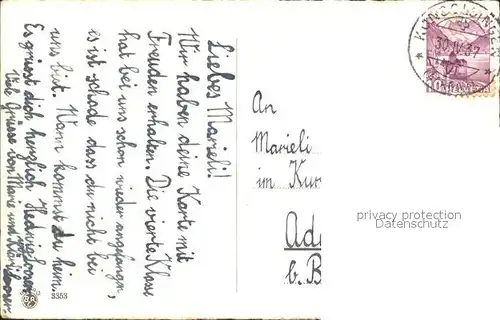 Liebes Marieli!
Wir haben deine Karte mit
Freuden erhalten. Die vierte Klasse
hat bei uns schon wieder angefangen,
es ist schad dass du nicht bei
uns bist. Wann kommst du heim.
Es grüsst dich herzlich Hedwig
Viele Grüsse von Marie und
An
Marieli
im Kur
Ad
b. B
privacy protection
Datenschutz
30.IV.37
3353